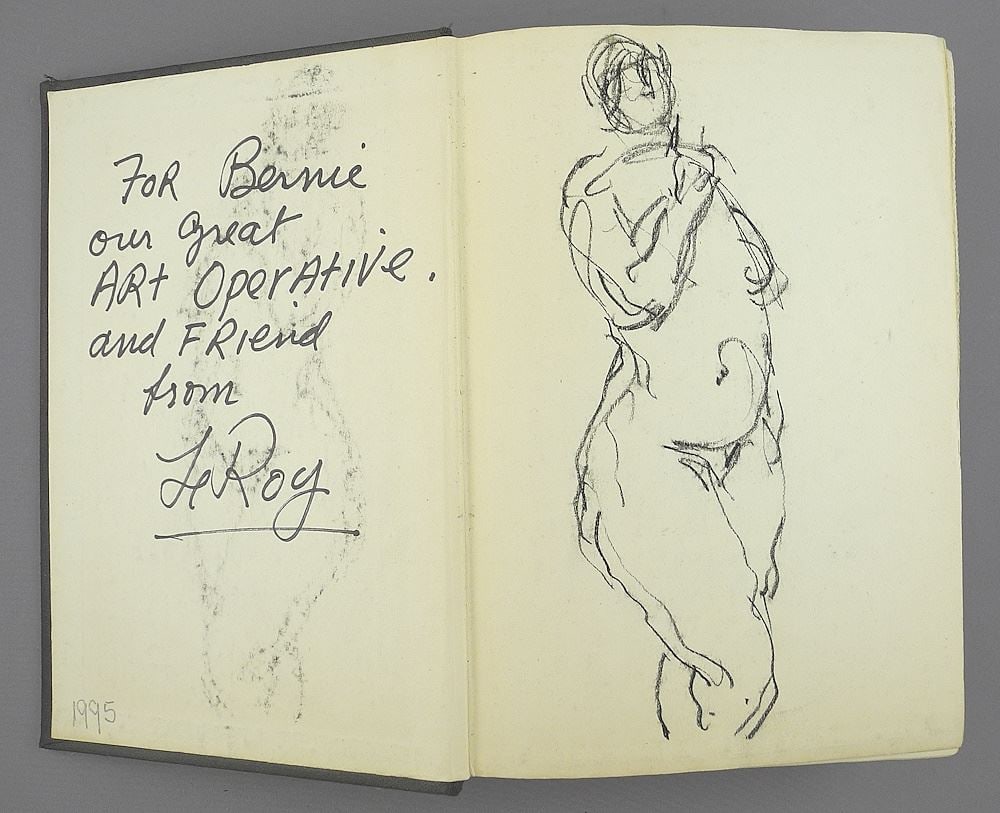 FOR Bernie
our Great
ARt OperAtive.
and FRiend
from
LeRoy
1995